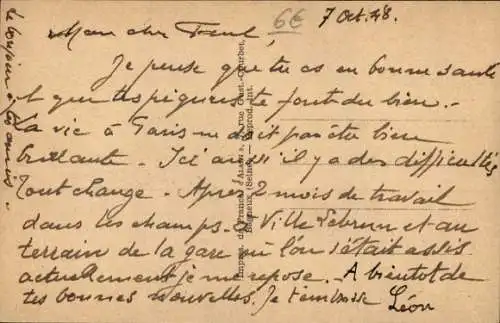 6€
7 Oct. 48.
Mon cher Paul,
Je pense que tu es en bonne santé
et que tes piqures te font du bien. -
La vie à Paris ne doit pas être bien
brillante. Ici aussi il y a des difficultés
Tout change. Après 2 mois de travail
dans les champs. Ville Lebrun et au
terrain de la gare où l'on s'était assis
actuellement je me repose. A bientôt de
tes bonnes nouvelles. Je t'embrasse
Léon
Le bonjour à
Imprim. de France, d'Alsace, rue Gust.-Courbet,
Bagneux (Seine). — Reprod. Int.